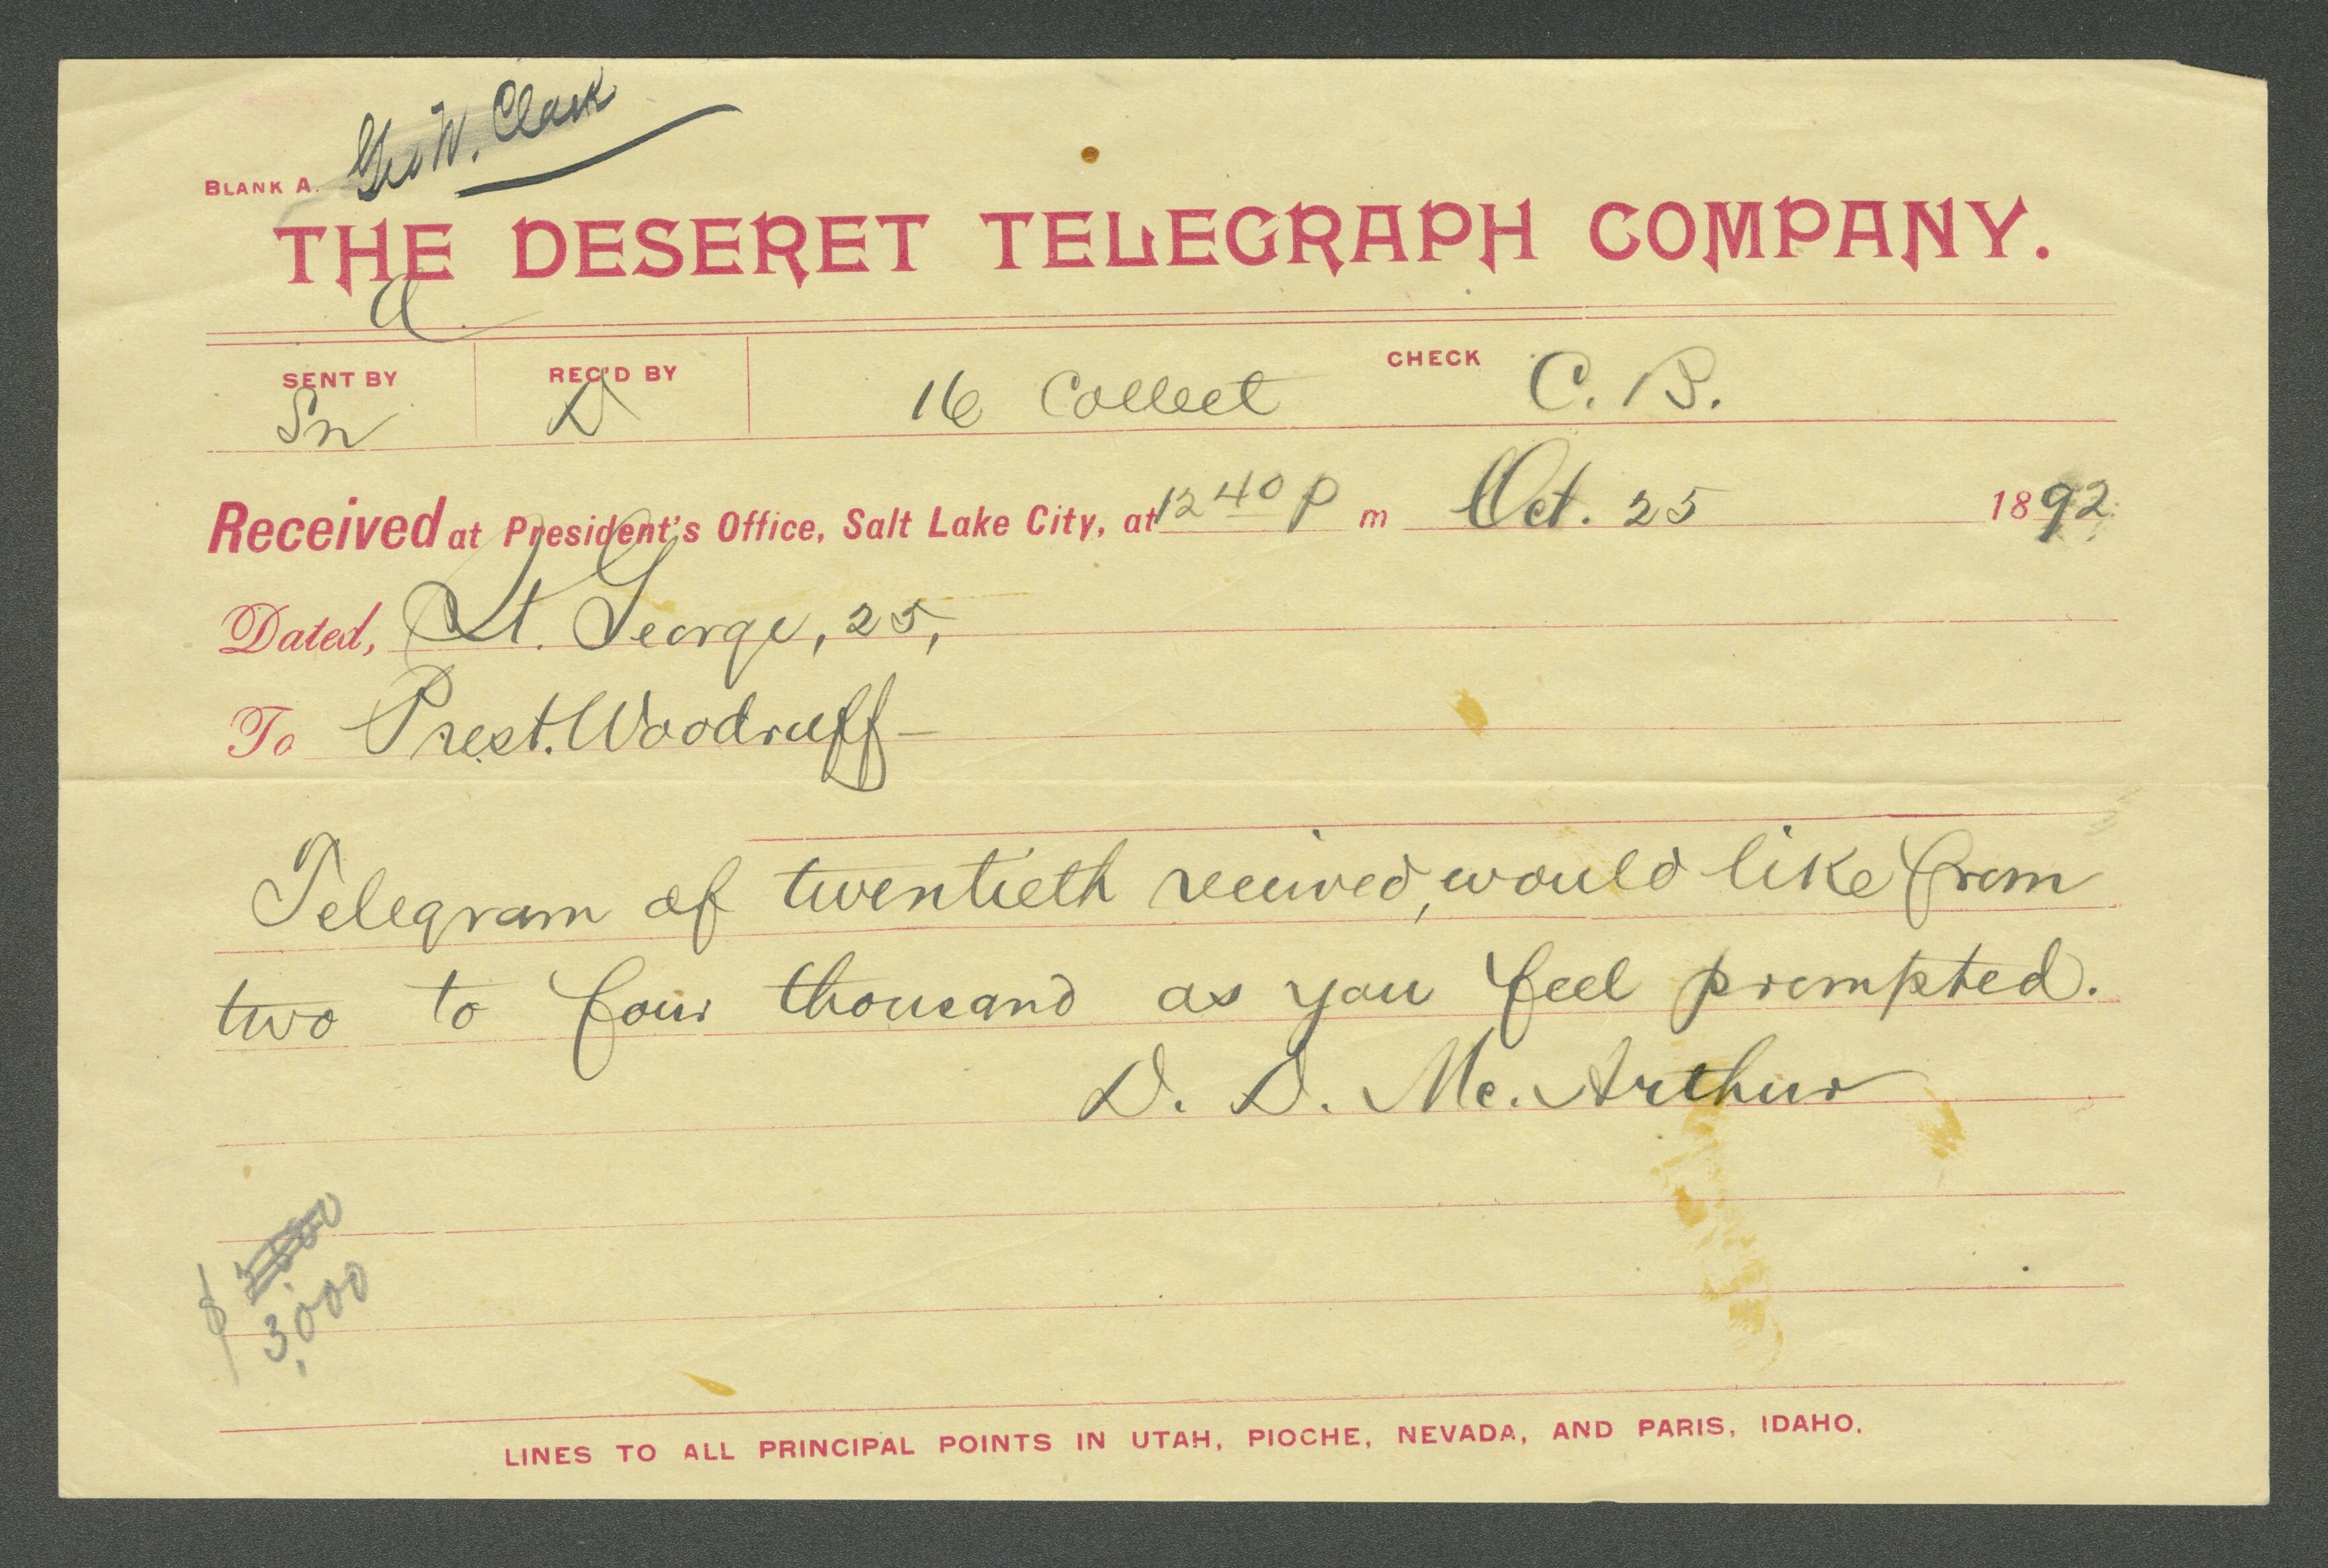 Geo W. Clark
BLANK A.
THE DESERET TELEGRAPH COMPANY.
a
SENT BY REC'D BY CHECK
Sn D 16 Collect C. B.
Received at President's Office, Salt Lake City, at 12 40 p m Oct. 25 1892
Dated, St. George, 25,
To Prest. Woodruff-
Telegram of twentieth received, would like from
two to four thousand as you feel prompted.
D. D. Mc. Arthur
$
3,000
LINES TO ALL PRINCIPAL POINTS IN UTAH, PIOCHE, NEVADA, AND PARIS, IDAHO.